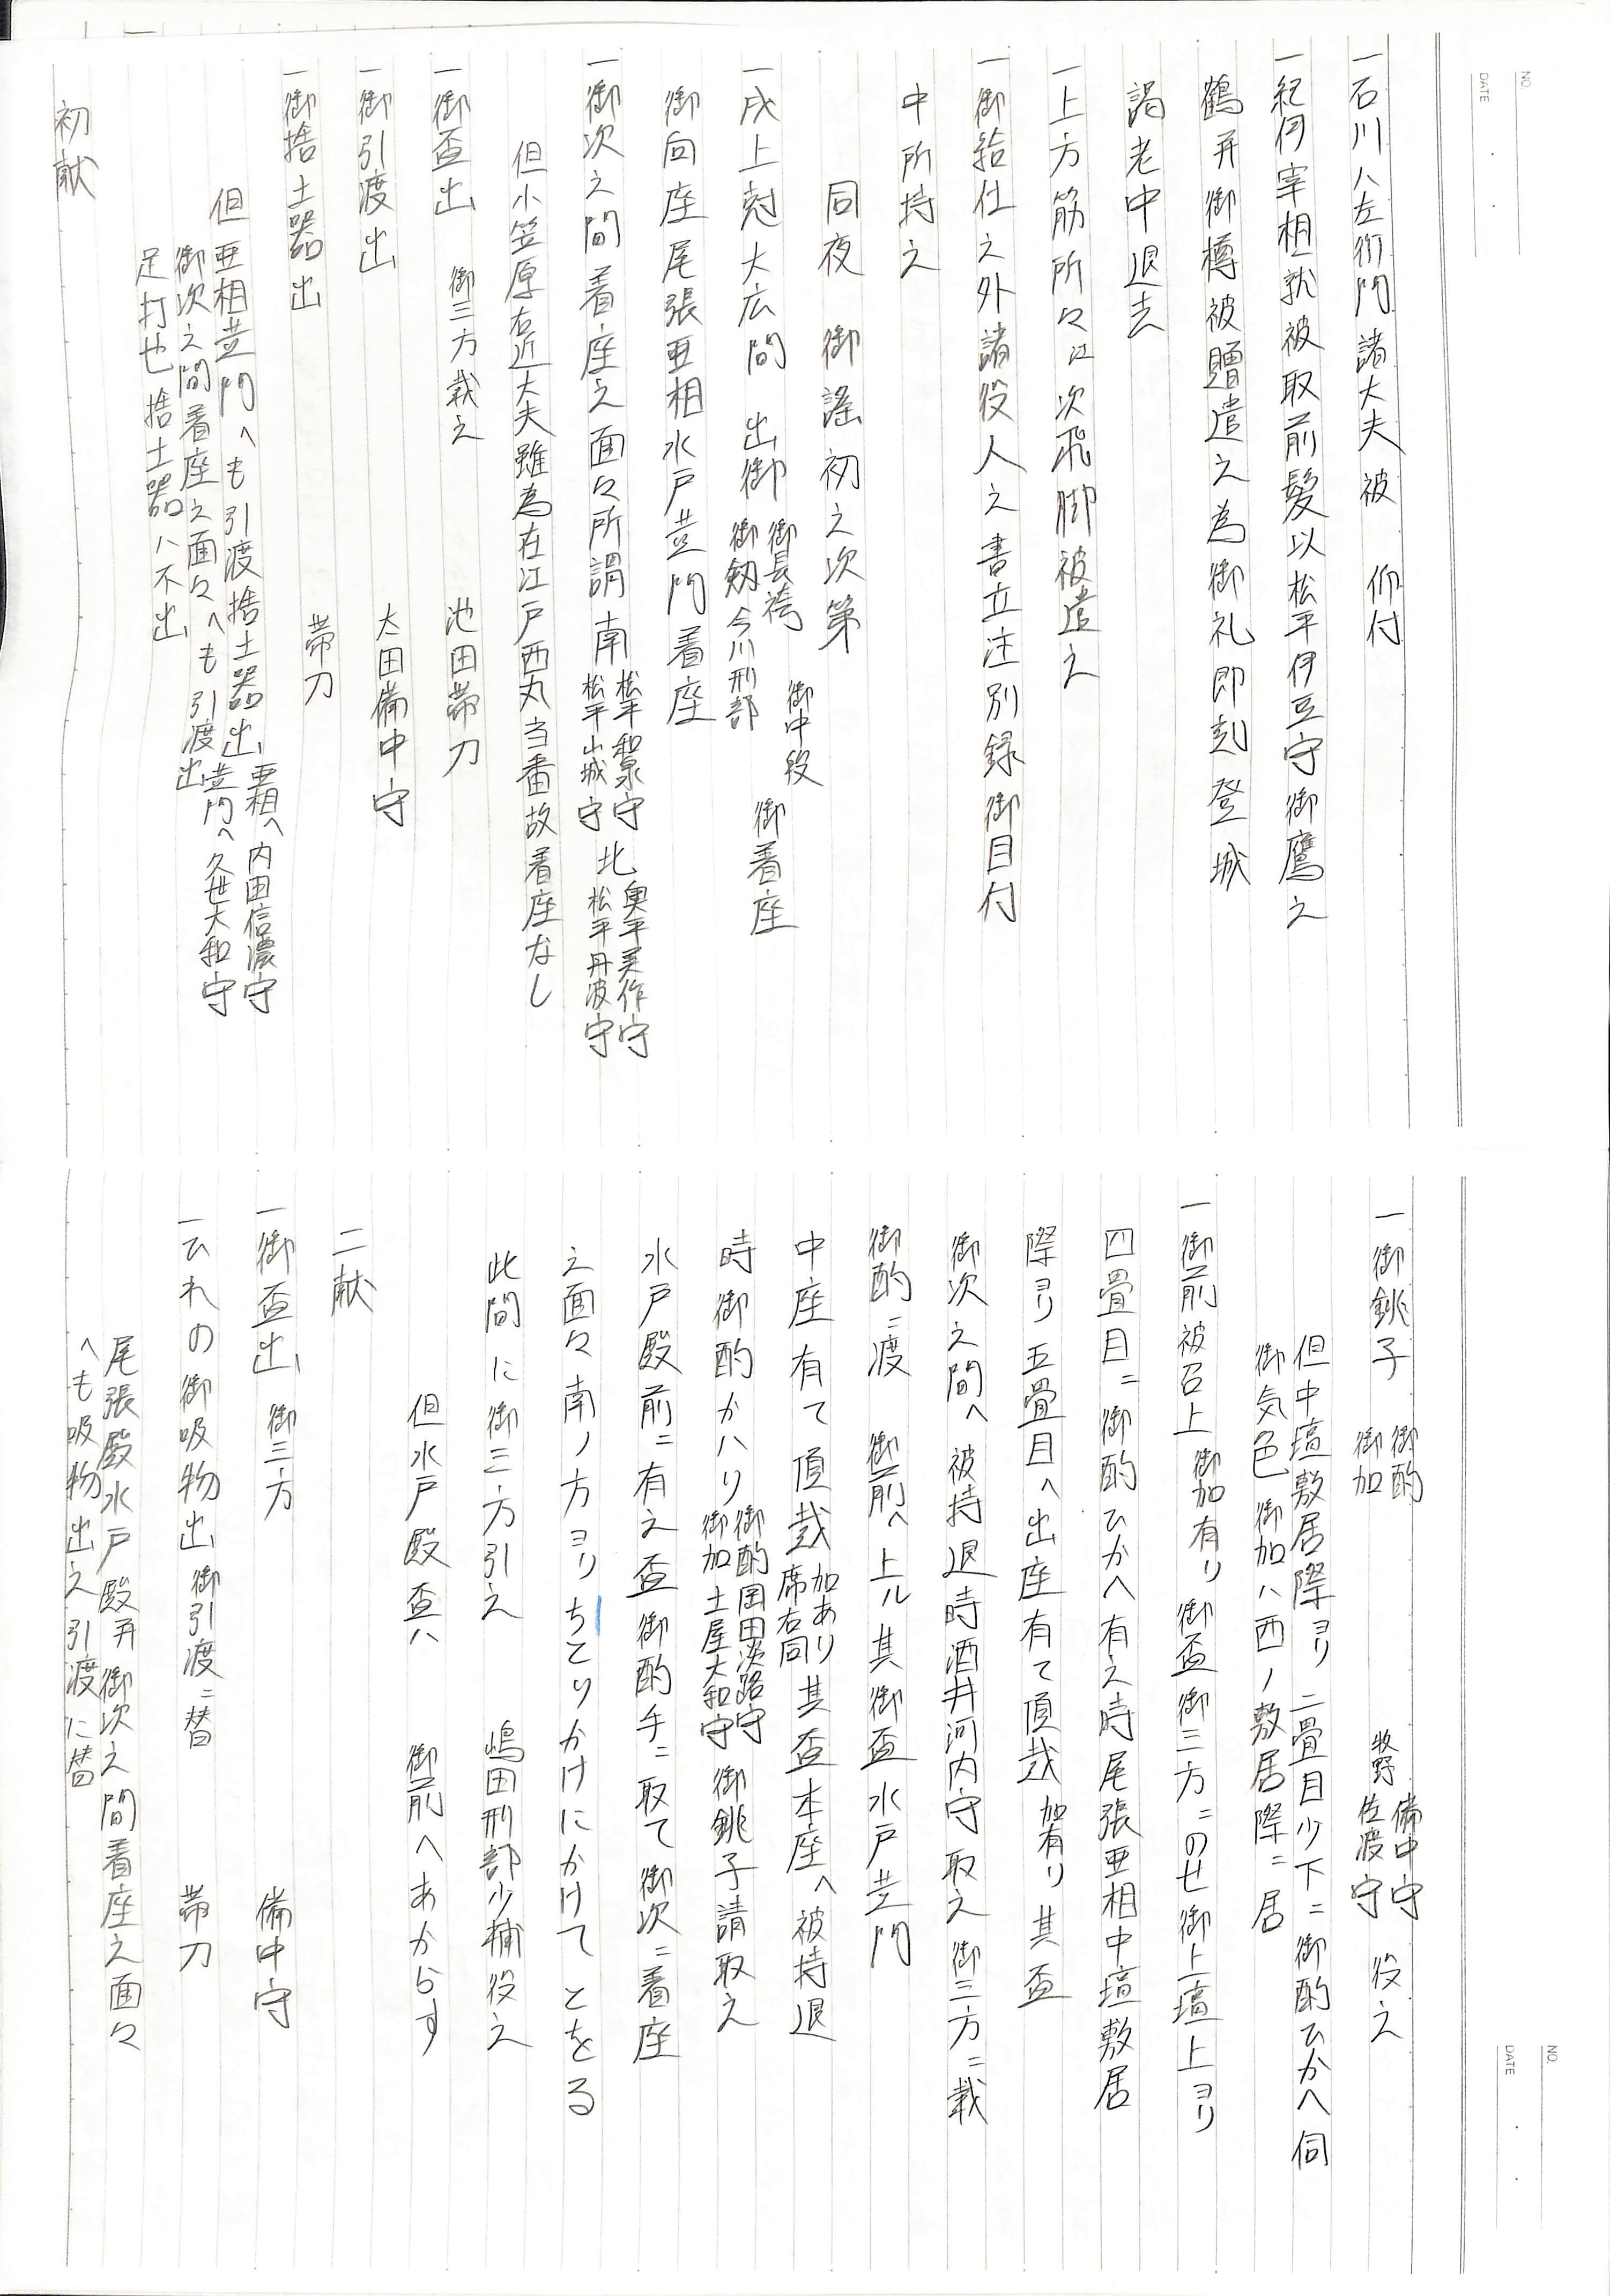 NO.
DATE
一石川八左衛門諸大夫被 仰付
一紀伊宰相就被取前髪以松平伊豆守御鷹之
鶴并御樽被贈遣之為御礼即刻登城
謁老中退去
一上方筋所々江次飛脚被遣之
一御給仕之外諸役人之書立注別録御目付
中所持之
同夜 御謡初之次第
一戌上尅大広間 出御 御長袴 御劔今川刑部 御中段 御着座
御向座尾張亜相水戸黄門着座
一御次之間着座之面々所謂 南 松平和泉守 松平山城守 北 奥平美作守 松平丹波守
但小笠原右近大夫雖為在江戸西丸当番故着座なし
一御盃出 御三方載之 池田帯刀
一御引渡出 太田備中守
一御捨土器出 帯刀
但亜相黄門へも引渡捨土器出 亜相へ内田信濃守 黄門へ久世大和守
御次之間着座之面々へも引渡出
足打也捨土器ハ不出
初献
NO.
DATE
一御銚子 御酌 御加 牧野 備中守 佐渡守 役之
但中壇敷居際ヨリ二畳目少下ニ御酌ひかへ伺
御気色御加ハ西ノ敷居際ニ居
一御前被召上 御加有り 御盃御三方ニのせ御上壇上ヨリ
四畳目ニ御酌ひかへ有之時尾張亜相中壇敷居
際ヨリ五畳目へ出座有て頂戴 加有り 其盃
御次之間へ被持退時酒井河内守取之御三方ニ載
御酌ニ渡 御前へ上ル其御盃水戸黄門
中座有て頂戴 加あり 席右同 其盃本座へ被持退
時御酌かハり 御酌岡田淡路守 御加土屋大和守 御銚子請取之
水戸殿前ニ有之盃御酌手ニ取て御次ニ着座
之面々南ノ方ヨリちとりかけにかけてとをる
此間に御三方引之 嶋田刑部少輔役之
但水戸殿盃ハ 御前へあからす
二献
一御盃出 御三方 備中守
一ひれの御吸物出 御引渡ニ替 帯刀
尾張殿水戸殿并御次之間着座之面々
へも吸物出之引渡に替